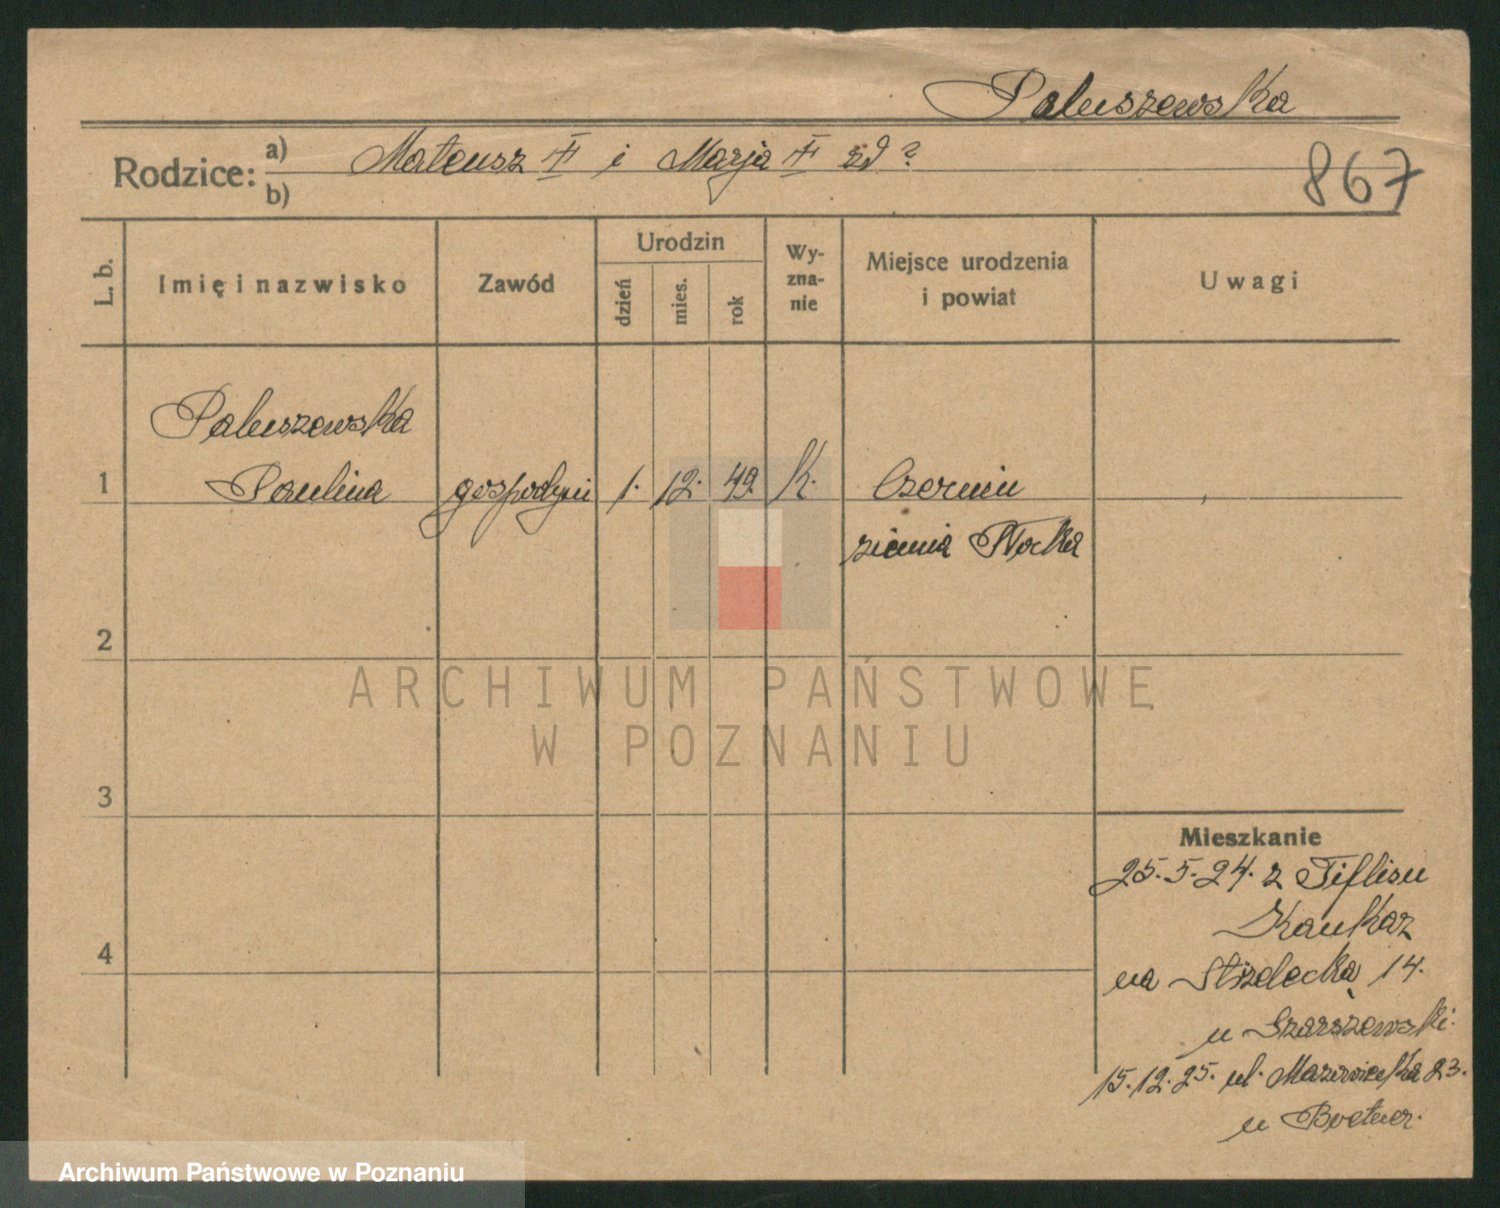 Paluszewska
Rodzice: a) Mateusz i Marja zd ?
b)
867
L. b.
Imię i nazwisko
Zawód
Urodzin
dzień
mies.
rok
Wy-
zna-
nie
Miejsce urodzenia
i powiat
Uwagi
Paluszewska
1 Paulina gospodyni 1. 12. 49. k. Czermin
ziemia Płocka
2
3
4
ARCHIWUM PAŃSTWOWE
W POZNANIU
Mieszkanie
25.5.24. z Tiflisu
Kaukaz
na Strzelecka 14.
u Szarszewski.
15.12.25. ul. Mazowiecka 23.
u
Archiwum Państwowe w Poznaniu